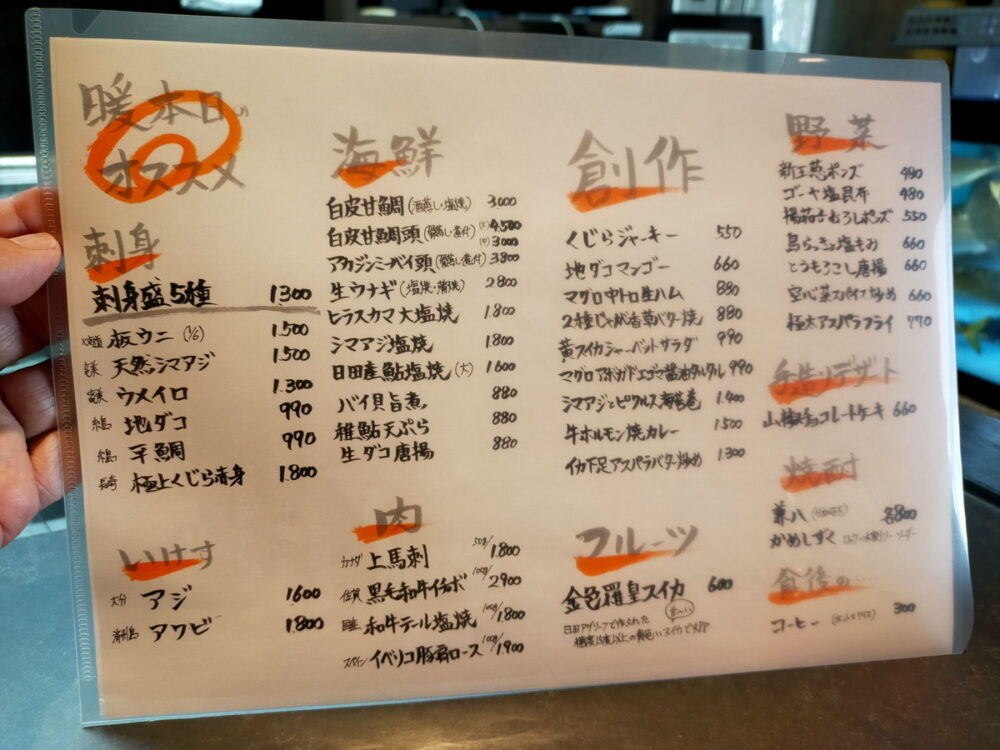 暖 本日の
オススメ
刺身
刺身盛5種 1300
板ウニ (½) 1.500
天然シマアジ 1500
ウメイロ 1.300
地ダコ 990
平鯛 990
長崎 極上くじら赤身 1.800
いけす
大分 アジ 1600
アワビ 1.800
海鮮
白皮甘鯛 (酒蒸し・塩焼) 3.000
白皮甘鯛頭 (酒蒸し・煮付) (大) 4.500
(中) 3000
アカジンミーバイ頭 (酒蒸し・煮付) 3800
生ウナギ (塩焼・蒲焼) 2800
ヒラスカマ大塩焼 1.800
シマアジ塩焼 1800
日田産鮎塩焼 (大) 1600
バイ貝旨煮 880
稚鮎天ぷら 880
生ダコ唐揚 880
肉
カナダ 上馬刺 50g/1.800
佐賀 黒毛和牛イチボ 100g/2900
和牛テール塩焼 100g/1.800
スペイン イベリコ豚肩ロース 100g/1900
創作
くじらジャーキー 550
地ダコマンゴー 660
マグロ中トロ生ハム 880
2種じゃが香草バター焼 880
黄スイカシャーベットサラダ 990
マグロアボカドエゴマ醤油タルタル 990
シマアジとピクルス海苔巻 1.400
牛ホルモン焼カレー 1500
イカ下足アスパラバター炒め 1300
フルーツ
金色羅皇スイカ 600
日田アグリーフで作られた
糖度15度以上の黄色いスイカです!!
野菜
新玉葱ポンズ 490
ゴーヤ塩昆布 480
揚茄子おろしポンズ 550
島らっきょ塩もみ 660
とうもろこし唐揚 660
空心菜スパイス炒め 660
極太アスパラフライ 770
手造りデザート
山椒チョコレートケーキ 660
焼酎
兼八 各800
かめしずく ロック・水割り・ソーダー
食後の…
コーヒー (ホットorアイス) 300